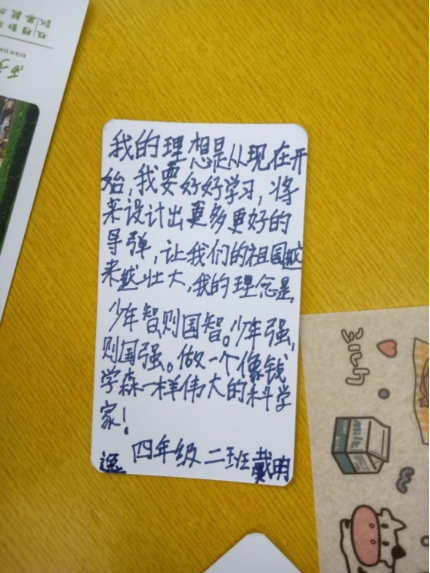 我的理想是从现在开
始,我要好好学习,将
来设计出更多更好的
导弹,让我们的祖国越
来越壮大,我的理念是
少年智则国智。少年强,
则国强。做一个像钱
学森一样伟大的科学
家!
四年级二班戴明
逸
milk